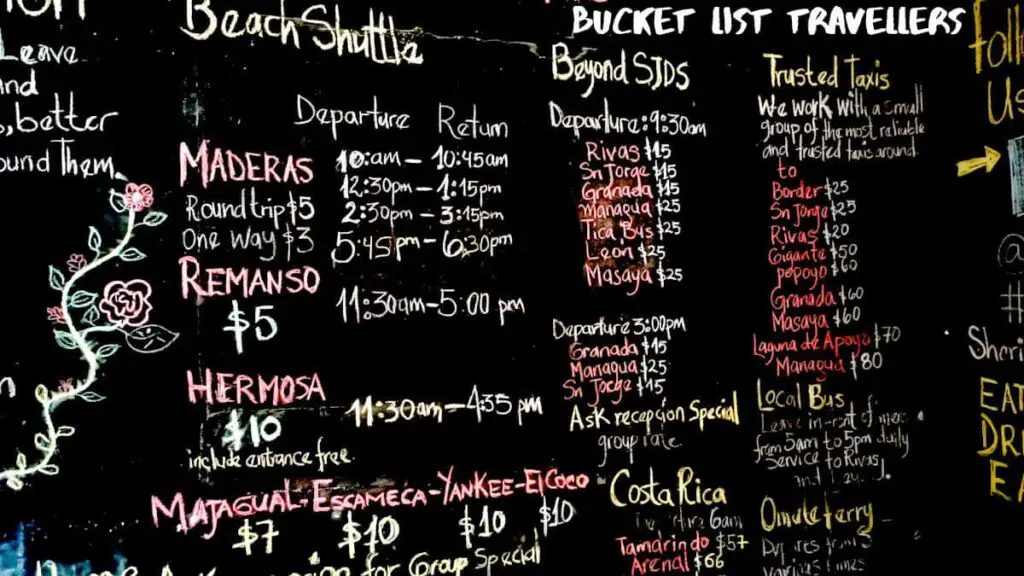 Leave
and
, better
ound Them.
Beach Shuttle
Departure Return
MADERAS
Roundtrip $5
One Way $3
10:am – 10:45am
12:30pm – 1:15pm
2:30pm – 3:15pm
5:45pm – 6:30pm
REMANSO
$5
11:30am – 5:00 pm
HERMOSA
$10
include entrance free.
11:30am – 4:35 pm
MAJAGUAL - ESCAMECA - YANKEE - El Coco
$7 $10 $10 $10
for Group Special
BUCKET LIST TRAVELLERS
Beyond SJDS
Departure: 9:30am
Rivas $15
Sn Jorge $15
Granada $15
Managua $25
Tica Bus $25
Leon $25
Masaya $25
Departure 3:00pm
Granada $15
Managua $25
Sn Jorge $15
Ask recepcion Special
group rate
Costa Rica
6am
Tamarindo $57
Arenal $66
Trusted Taxis
We work with a small
group of the most reliable
and trusted taxis around.
to
Border $25
Sn Jorge $25
Rivas $20
Gigante $50
popoyo $60
Granada $60
Masaya $60
Laguna de Apoyo $70
Managua $80
Local Bus
Leave
from 5am to 5pm daily
Service to Rivas
ferry
times
Follo
Us
@
#
Shari
EAT
DRI
EA